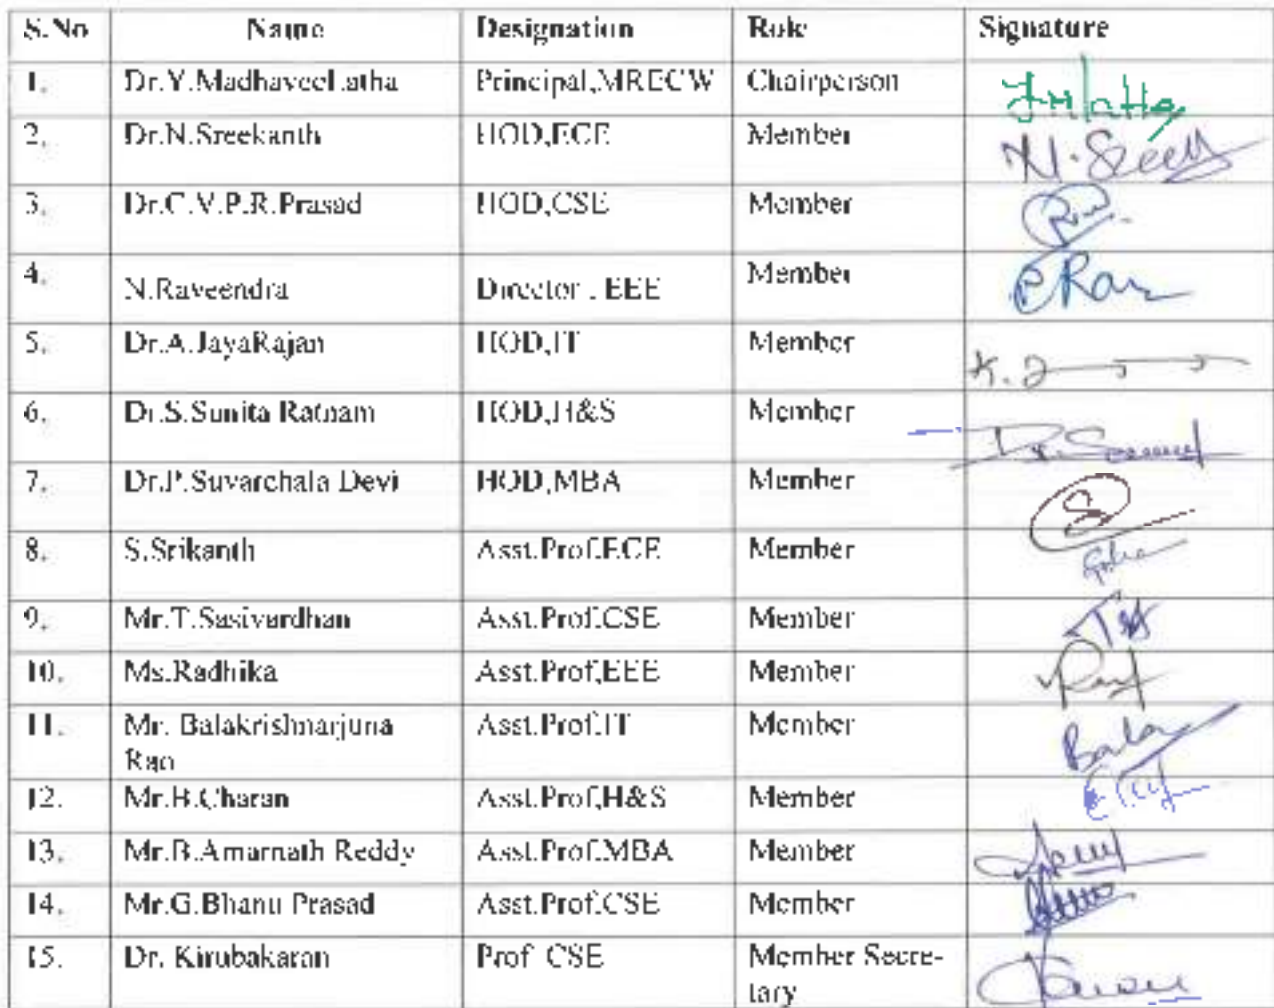 S.No Name Designation Role Signature
1. Dr.Y.MadhaveeLatha Principal,MRECW Chairperson
2. Dr.N.Sreekanth HOD,ECE Member N.Sree
3. Dr.C.V.P.R.Prasad HOD,CSE Member
4. N.Raveendra Director , EEE Member
5. Dr.A.JayaRajan HOD,IT Member
6. Dr.S.Sunita Ratnam HOD,H&S Member
7. Dr.P.Suvarchala Devi HOD,MBA Member
8. S.Srikanth Asst.Prof.ECE Member
9. Mr.T.Sasivardhan Asst.Prof.CSE Member
10. Ms.Radhika Asst.Prof,EEE Member
11. Mr. Balakrishnarjuna Asst.Prof.IT Member Bala
Rao
12. Mr.B.Charan Asst.Prof,H&S Member
13. Mr.B.Amarnath Reddy Asst.Prof.MBA Member
14. Mr.G.Bhanu Prasad Asst.Prof.CSE Member
15. Dr. Kirubakaran Prof CSE Member Secre-
tary